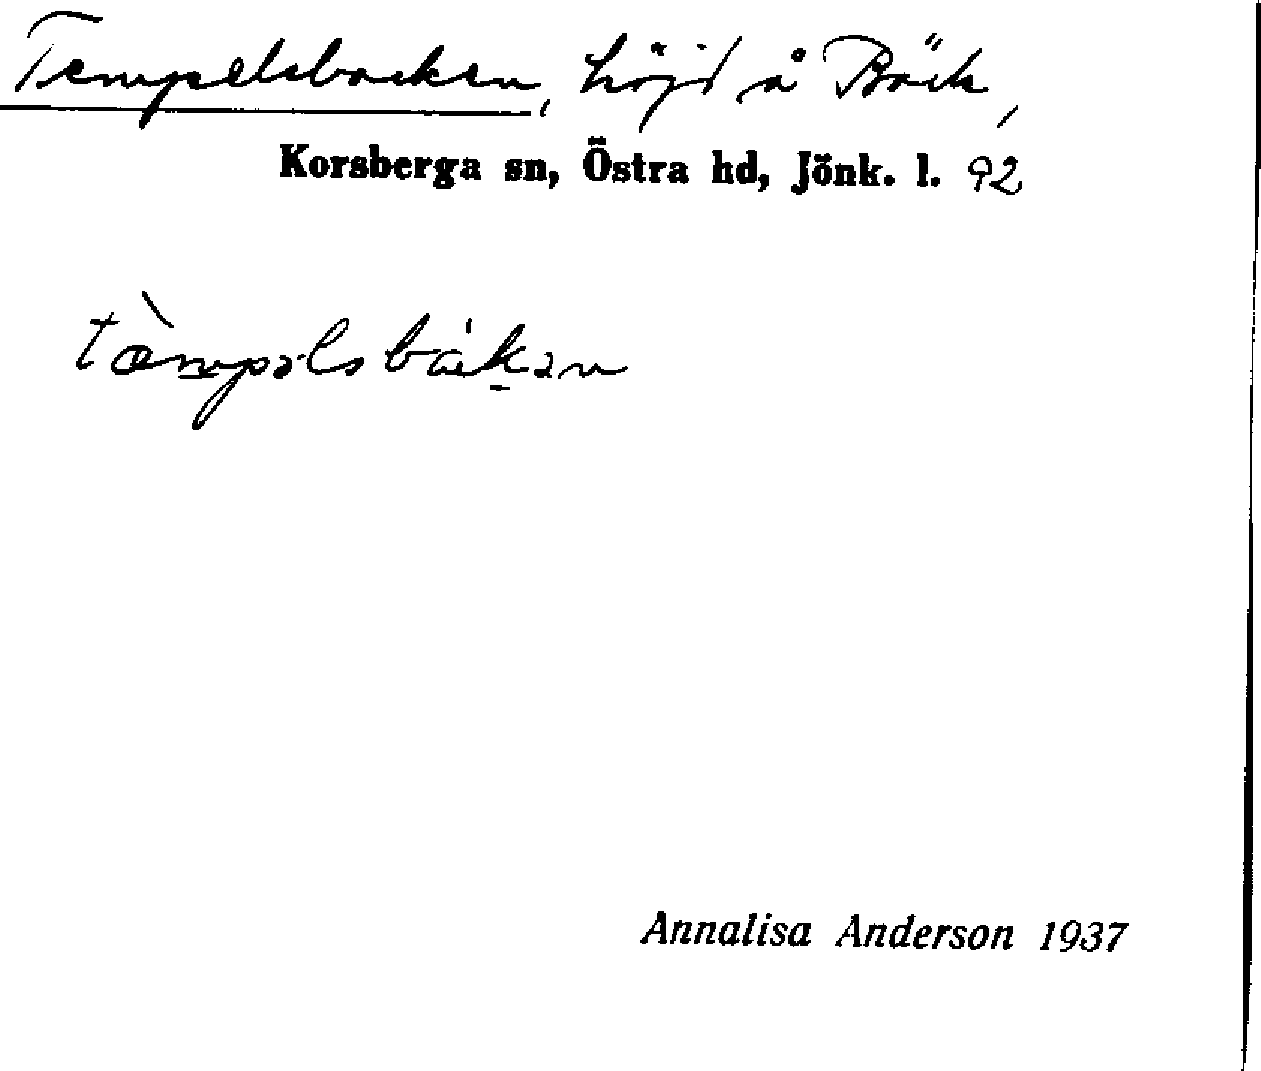 Tempelsbacken, höjd å Bäck,
Korsberga sn, Östra hd, Jönk. l. 92
tæ̀mpəlsbákən
Annalisa Anderson 1937